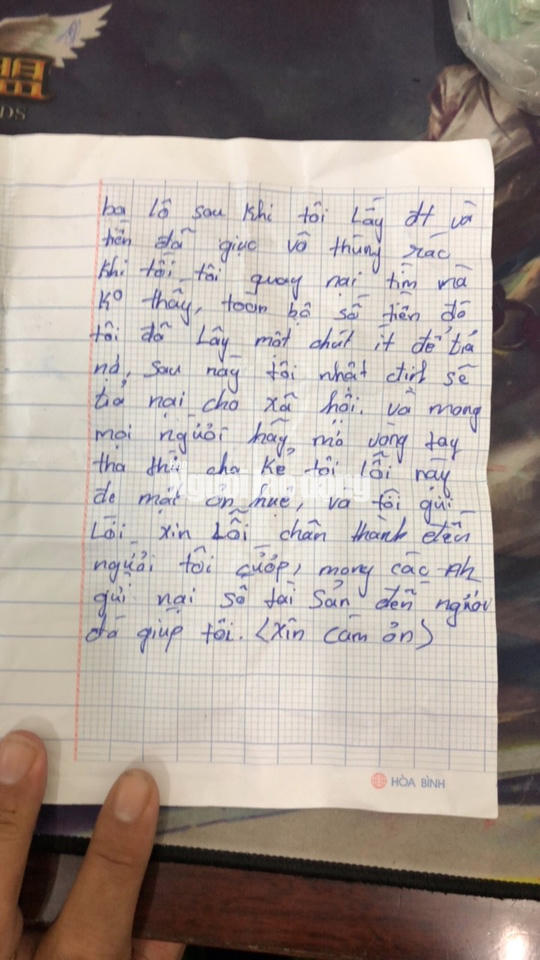 ba lô sau khi tôi Lấy đt và
tiền đã giục vô thùng rác
khi tối tôi quay nai tìm mà
ko thấy, toàn bộ số tiền đó
tôi đã Lấy một chút ít để tiả
nợ, sau này tôi nhất định sẽ
tiả nai cho xã hội. và mong
mọi người hãy mở vòng tay
tha thứ cho kẻ tội lỗi này
để mại ơn huệ, và tôi gửi
Lời xin Lỗi chân thành đến
người tôi cướp, mong các Ah
gửi nại số tài sản đến người
đó giúp tôi. (xin cảm ơn)
HÒA BÌNH
盟
DS